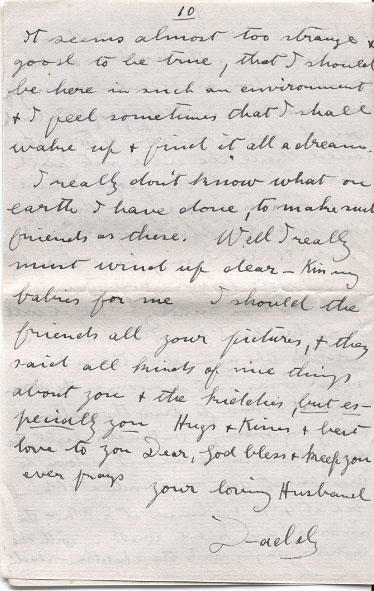 10
It seems almost too strange &
good to be true, that I should
be here in such an environment
& I feel sometimes that I shall
wake up & find it all a dream.
I really don't know what on
earth I have done, to make such
friends as these. Well I really
must wind up dear - Kiss my
babies for me I should the
friends all your pictures, & they
said all kinds of nice things
about you & the kiddies, but es-
pecially you Hugs & Kisses & best
love to you Dear, God bless & keep you
ever prays
your loving Husband
Daddy